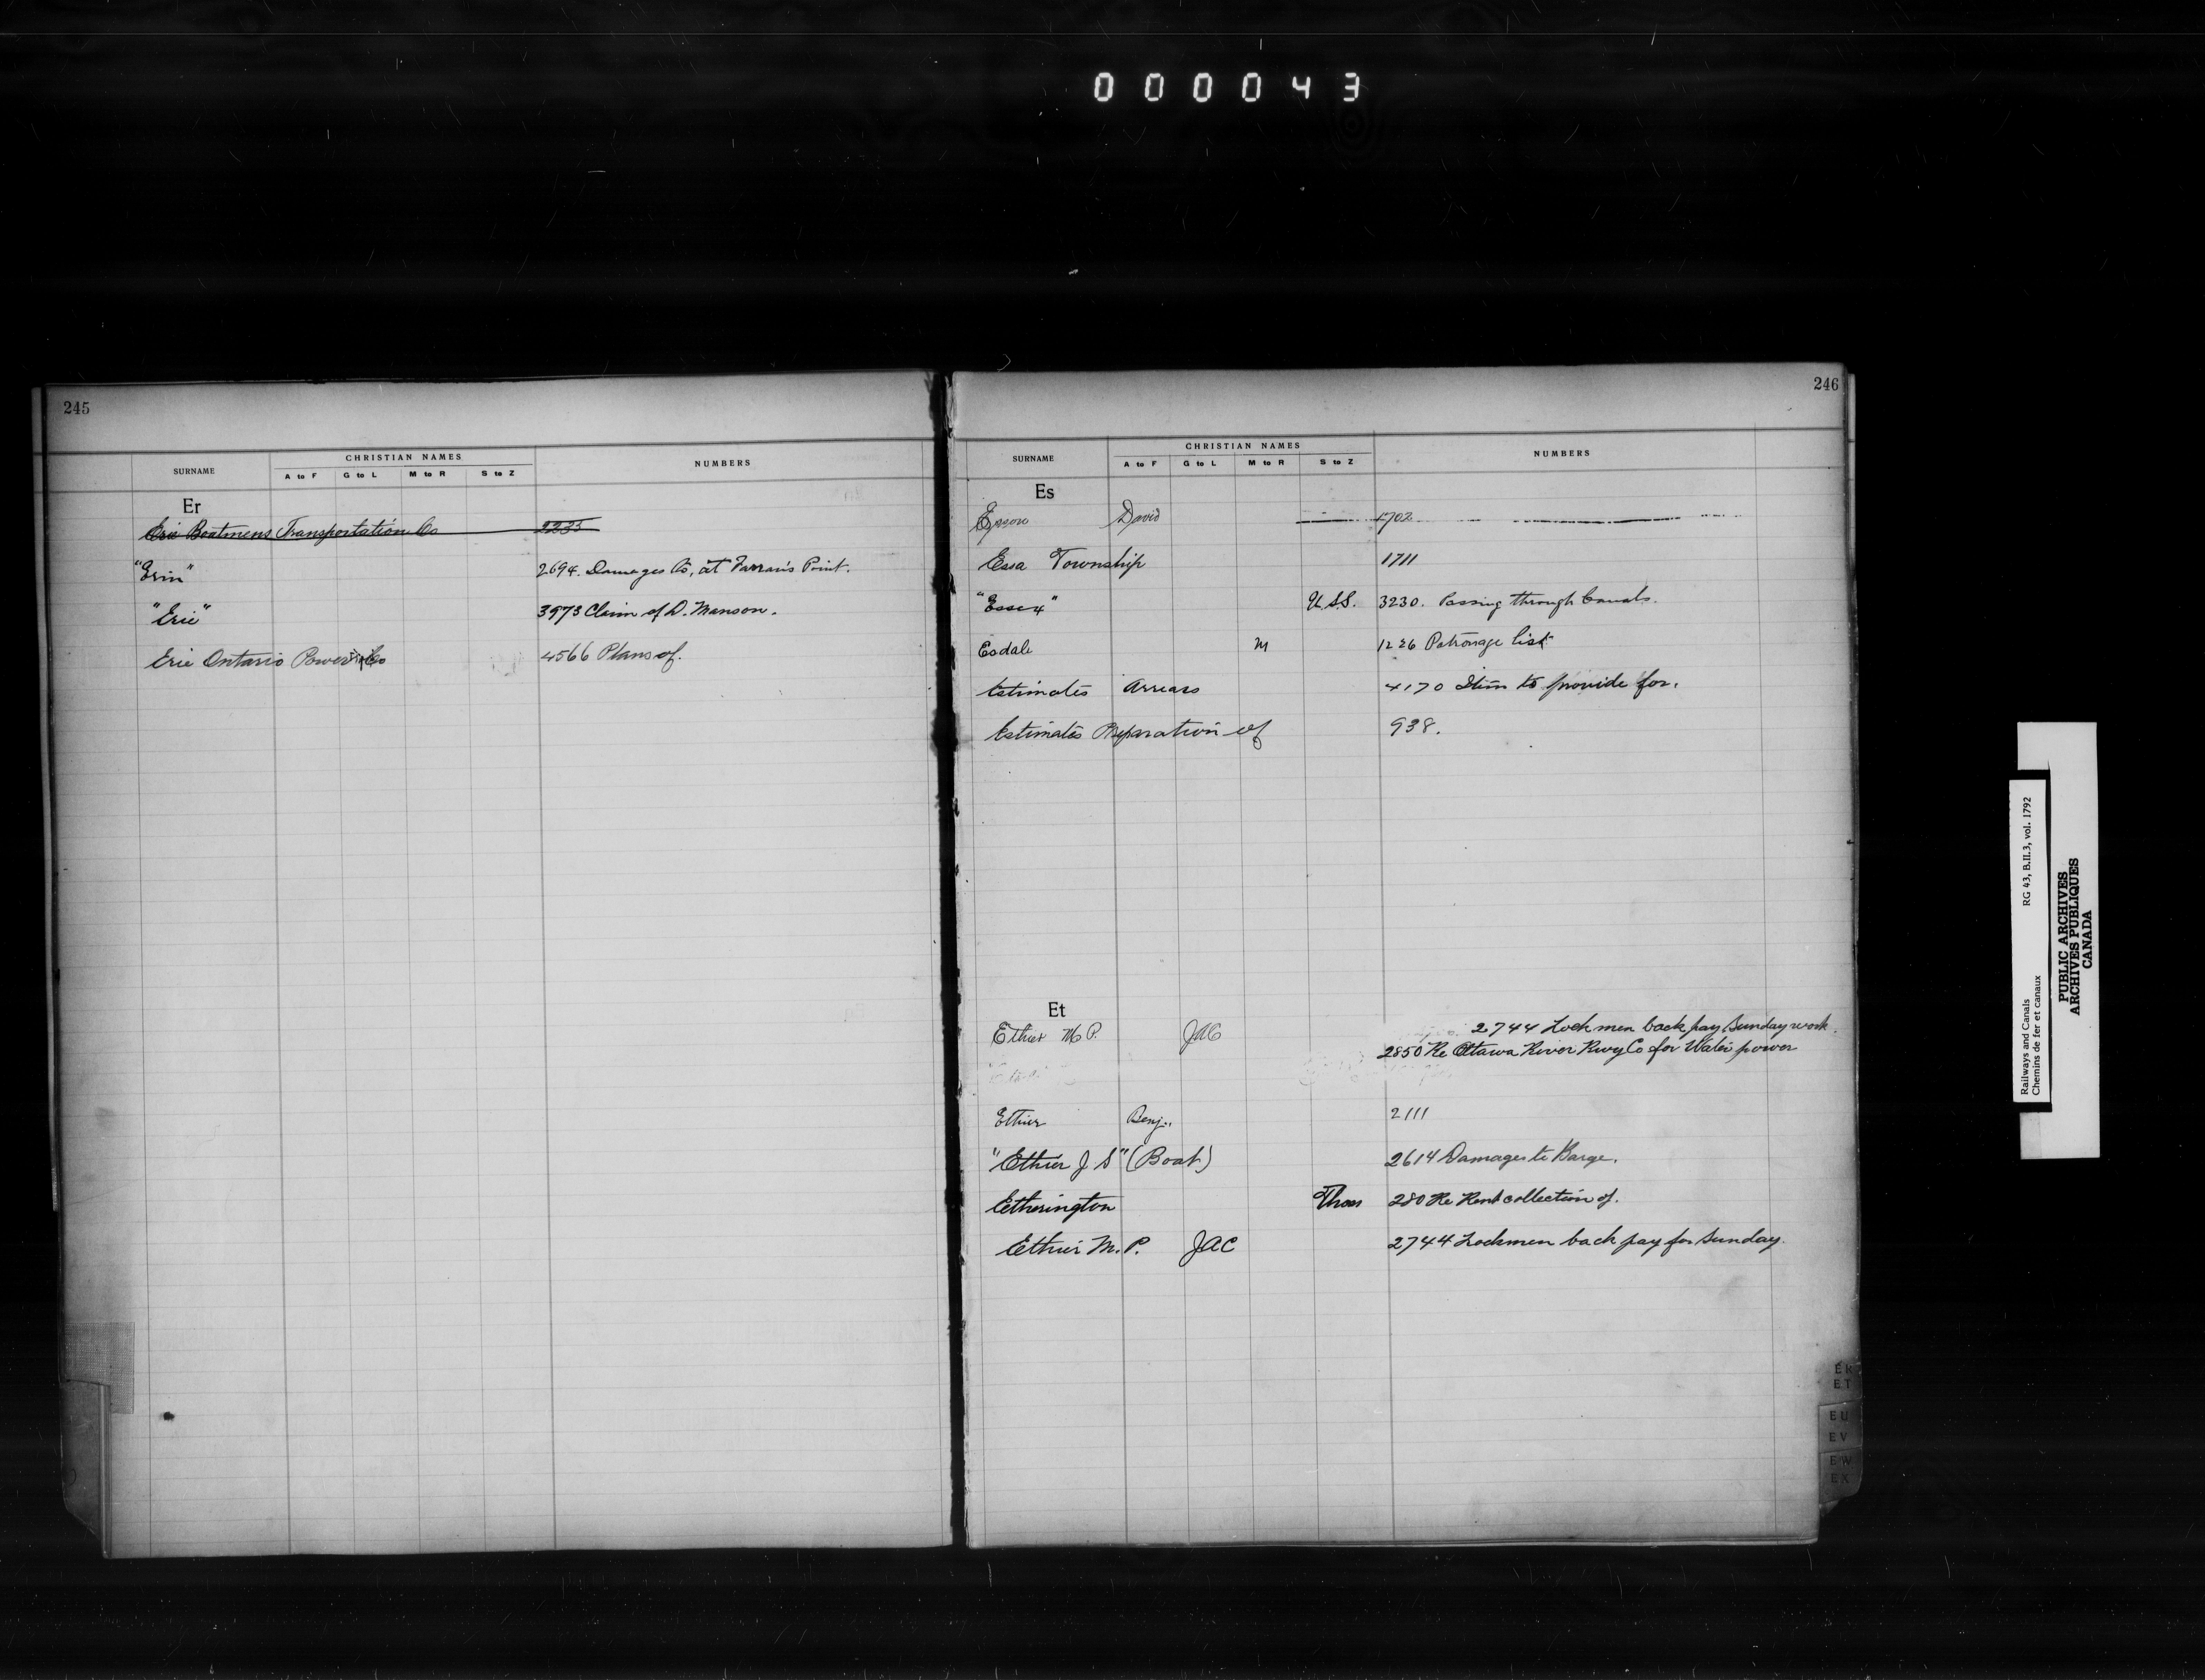 000043
245
SURNAME CHRISTIAN NAMES NUMBERS
A to F G to L M to R S to Z
Er
Erie Boatmens Transportation Co 2235
"Erin" 2694. Damages to, at Farran's Point.
"Erie" 3973 Claim of D. Manson.
Erie Ontario Power Co 4566 Plans of.
246
SURNAME CHRISTIAN NAMES NUMBERS
A to F G to L M to R S to Z
Es
David 1702
Essa Township 1711
"Essex" U.S.S. 3230. Passing through Canals.
Esdale M 1226 Patronage list
Estimates Arrears 4170 Item to provide for.
Estimates Preparation of 938.
Et
Ethier M.P. JAC 2744 Lockmen back pay, Sunday work.
2850 Re Ottawa River Rwy Co for Water power
Ethier Benj. 2111
"Ethier J S" (Boat) 2614 Damages to Barge.
Etherington Thos 280 Re Rent collection of.
Ethier M.P. JAC 2744 Lockmen back pay for Sunday.
EK
ET
EU
EV
EW
Railways and Canals RG 43, B.II.3, vol. 1792
Chemins de fer et canaux
PUBLIC ARCHIVES
ARCHIVES PUBLIQUES
CANADA